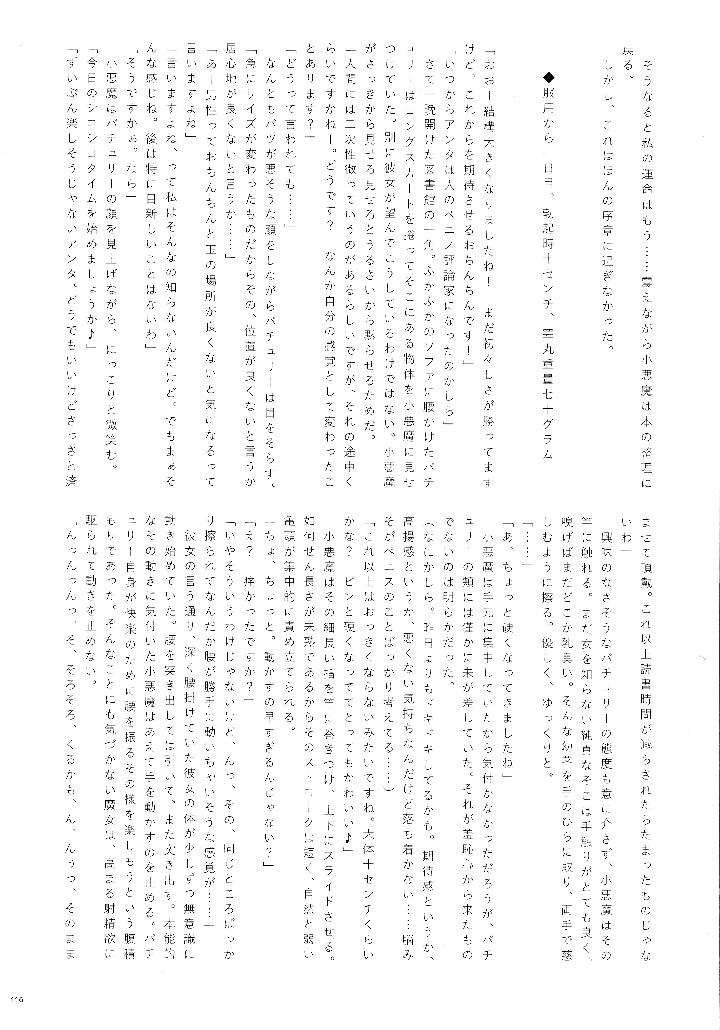 そうなると私の運命はもう……震えながら小悪魔は本の整理に
戻る。
しかし、これはほんの序章に過ぎなかった。
◆服用から一日目、勃起時十センチ、睾丸重量七十グラム
「おおー結構大きくなりましたね！　まだ初々しさが勝ってます
けど、これからを期待させるおちんちんです！」
「いつからアンタは人のペニス評論家になったのかしら」
さて一晩開けた図書館の一角。ふかふかのソファに腰かけたパチ
ュリーはロングスカートを捲ってそこにある物体を小悪魔に見せ
つけていた。別に彼女が望んでこうしているわけではない。小悪魔
がさっきから見せろ見せろとうるさいから黙らせるためだ。
「人間には二次性徴っていうのがあるらしいですが、それの途中く
らいですかねー。どうです？　なんか自分の感覚として変わったこ
とあります？」
「どうって言われても……」
なんともバツが悪そうな顔をしながらパチュリーは目をそらす。
「急にサイズが変わったものだからその、位置が良くないと言うか
居心地が良くないと言うか……」
「あー男性っておちんちんと玉の場所が良くないと気になるって
言いますよね」
「言いますよね、って私はそんなの知らないんだけど。でもまぁそ
んな感じね。後は特に目新しいことはないわ」
「そうですかぁ。なら」
小悪魔はパチュリーの顔を見上げながら、にっこりと微笑む。
「今日のシコシコタイムを始めましょうか♪」
「ずいぶん楽しそうじゃないアンタ。どうでもいいけどさっさと済
ませて頂戴。これ以上読書時間が減らされたらたまったものじゃな
いわ」
興味のなさそうなパチュリーの態度も意に介さず、小悪魔はその
竿に触れる。まだ女を知らない純真なそこは手触りがとても良く、
嗅げばまだどこか乳臭い。そんな幼茎を手のひらに取り、両手で慈
しむように擦る。優しく、ゆっくりと。
「……」
「あ、ちょっと硬くなってきましたね」
小悪魔は手元に集中していたから気付かなかっただろうが、パチ
ュリーの頬には僅かに朱が差していた。それが羞恥心から来たもの
でないのは明らかだった。
（なにかしら。昨日よりもドキドキしてるかも。期待感というか、
高揚感というか、悪くない気持ちなんだけど落ち着かない……脳み
そがペニスのことばっかり考えてる……）
「これ以上はおっきくならないみたいですね。大体十センチくらい
かな？　ピンと硬くなっててとってもかわいい♪」
小悪魔はその細長い指を竿に巻きつけ、上下にスライドさせる。
如何せん長さが未熟であるからそのストロークは短く、自然と弱い
亀頭が集中的に責め立てられる。
「ちょ、ちょっと。動かすの早すぎるんじゃない？」
「え？　痛かったですか？」
「いやそういうわけじゃないけど、んっ、その、同じところばっか
り擦られてなんだか腰が勝手に動いちゃいそうな感覚が……」
彼女の言う通り、深く腰掛けていた彼女の体が少しずつ無意識に
動き始めていた。腰を突き出しては引いて、また突き出す。本能的
なその動きに気付いた小悪魔はあえて手を動かすのを止める。パチ
ュリー自身が快楽のために腰を振るその様を楽しもうという腹積
もりであった。そんなことにも気づかない魔女は、高まる射精欲に
駆られて動きを止めない。
「んっんっんっ、そ、そろそろ、くるかも、ん、んぅっ、そのまま
116